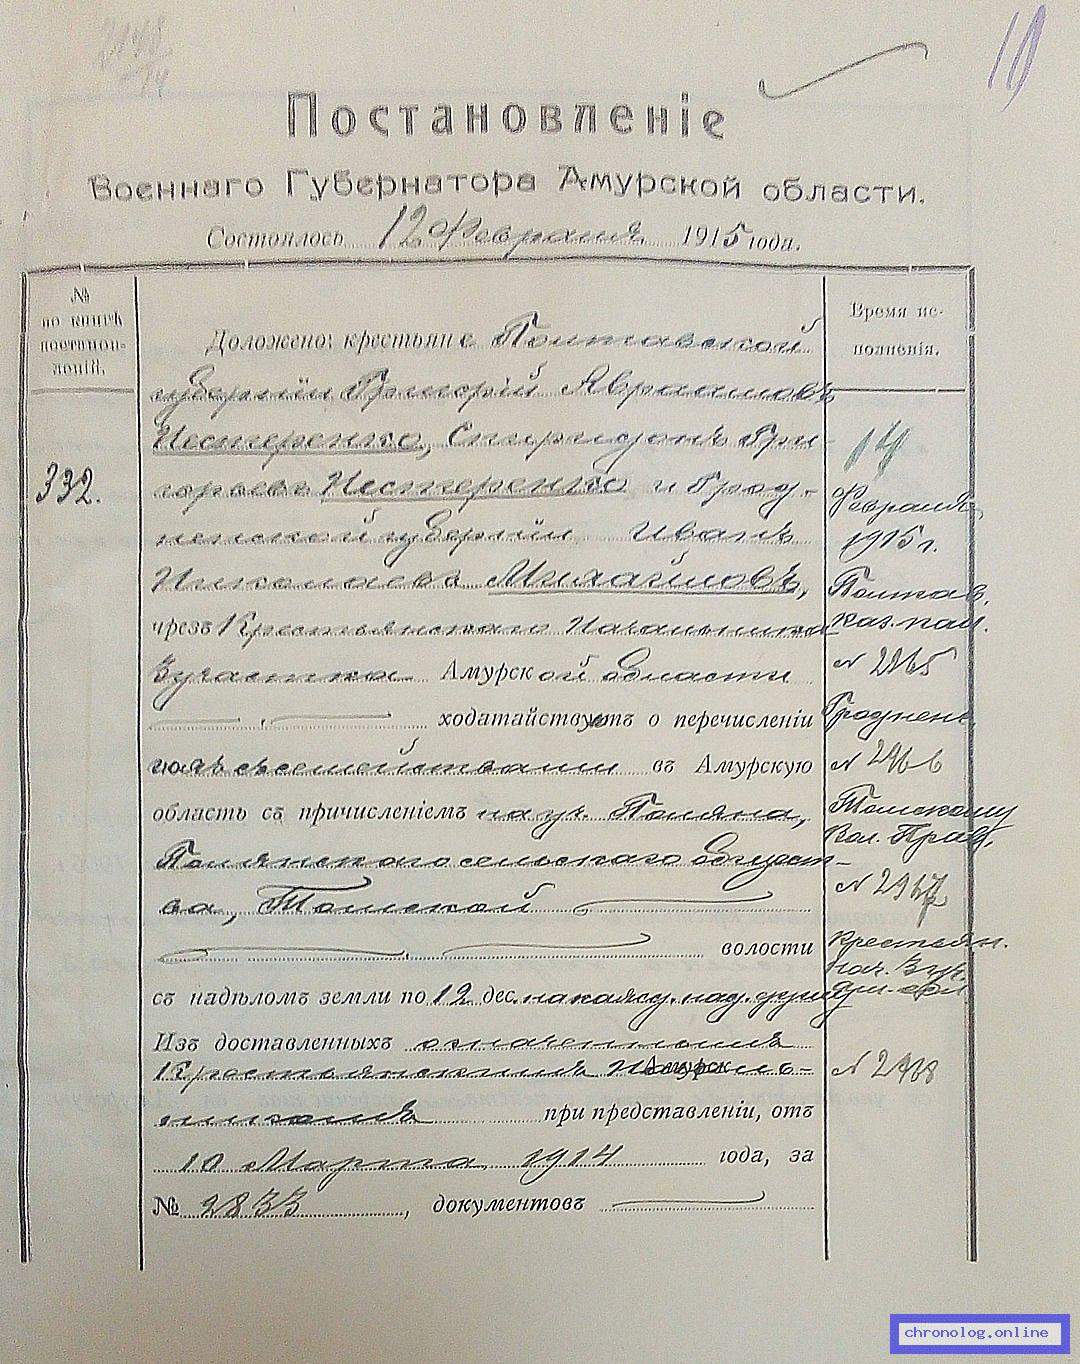 10
Постановленіе
Военнаго Губернатора Амурской области.
Состоялось 12 Февраля 1915 года.
№
по книгѣ
постанов-
леній.
332.
Доложено: крестьяне Полтавской
губерніи Григорій Авраамовъ
Нестеренко, Спиридонъ Гри-
горьевъ Нестеренко и Грод-
ненской губерніи Иванъ
Николаевъ Михайловъ,
чрезъ Крестьянскаго Начальника
3 участка Амурской области
ходатайствуютъ о перечисленіи
ихъ съ семействами въ Амурскую
область съ причисленіемъ на уч. Поляна,
Полянскаго сельскаго общест-
ва, Томской
волости
съ надѣломъ земли по 12 дес. на каждую
Изъ доставленныхъ означеннымъ
Крестьянскимъ Началь-
Амурск
никомъ при представленіи, отъ
10 Марта 1914 года, за
№ 2833, документовъ
Время ис-
полненія.
14
Февраля
1915 г.
Полтав.
каз. пал.
№ 2965
Гроднен.
№ 2966
Томскому
Вол. Прав.
№ 2967
Крестьян.
нач. 3 уч.
№ 2968
chronolog.online